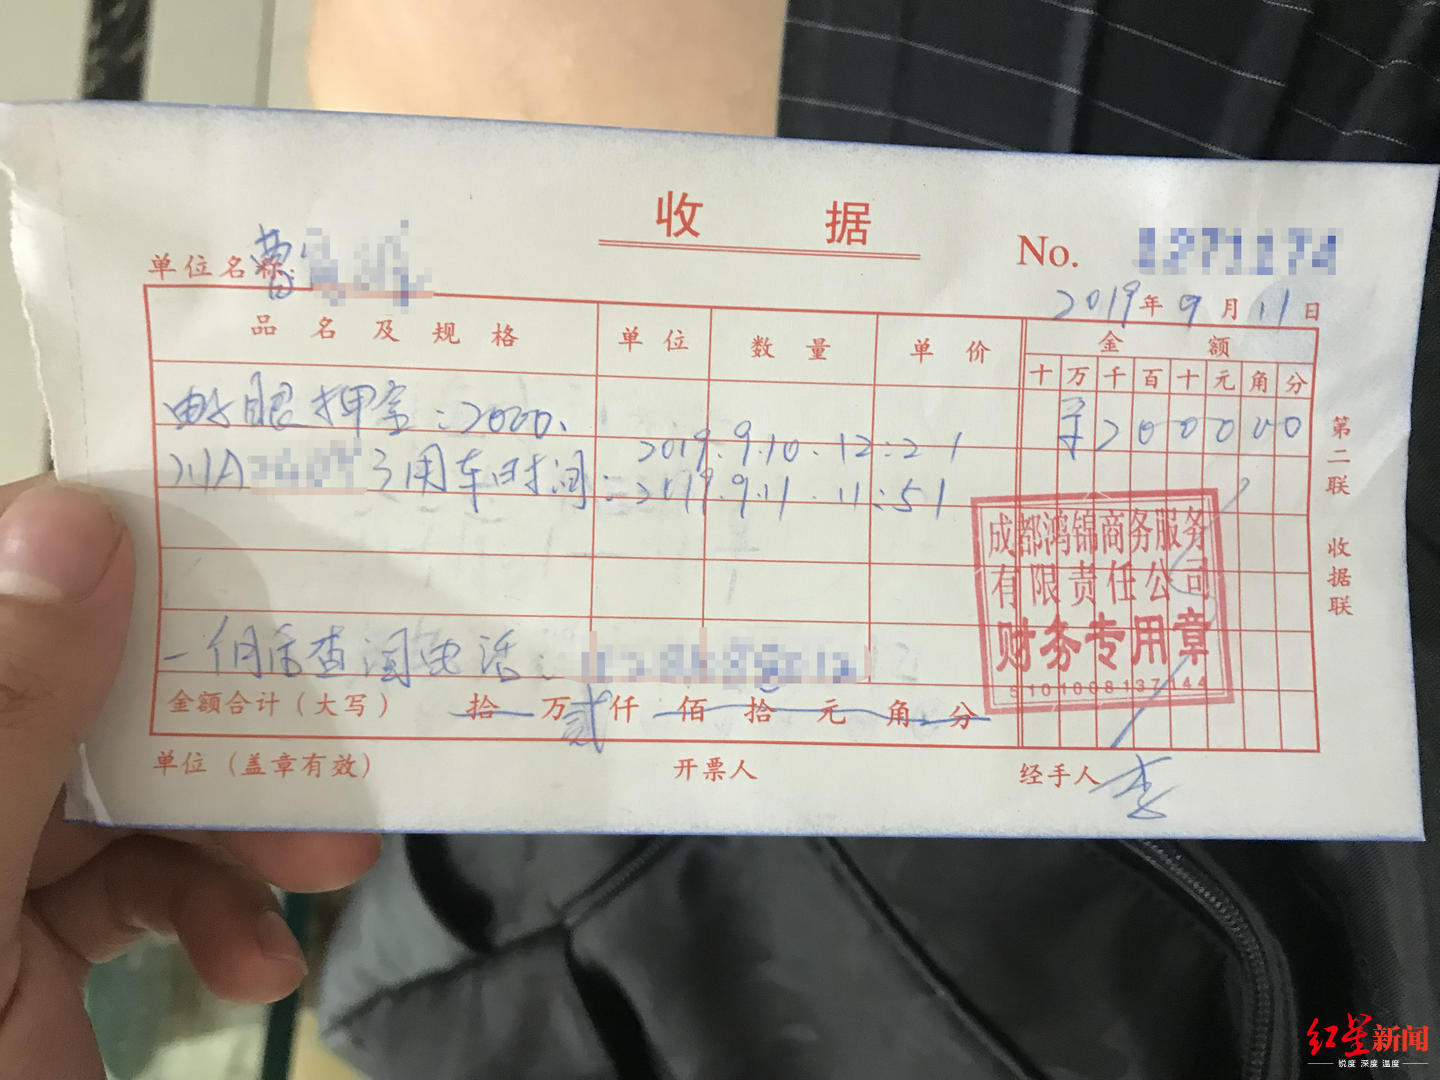 收 据
No. 1271174
单位名称: 曹
2019年9月11日
品名及规格 单位 数量 单价 金额
十 万 千 百 十 元 角 分
电子眼押金:2000. ¥200000
2019.9.10.12:21
川A 用车时间: 2019.9.11.11:51
一个月后查询电话:
金额合计(大写) 拾 万 贰 仟 佰 拾 元 角 分
单位(盖章有效) 开票人 经手人 李
第二联 收据联
成都鸿锦商务服务
有限责任公司
财务专用章
5101008137144
红星新闻
锐度 深度 温度